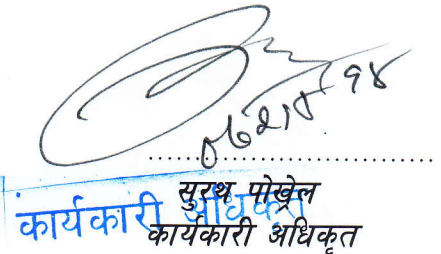 सुरथ पोखेल
कार्यकारी अधिकृत
कार्यकारी अधिकृत